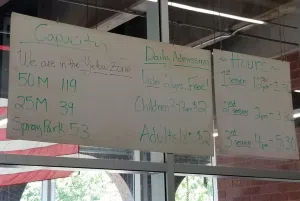 Capacity
We are in the Yellow Zone
50M 119
25M 39
Spray Park 53
Daily Admission
Under 2 yrs. Free!
Children 2-17yrs $2
Adults 18+ $
Hours
1st Session
2nd Session
3rd Session 4pm - 5:30